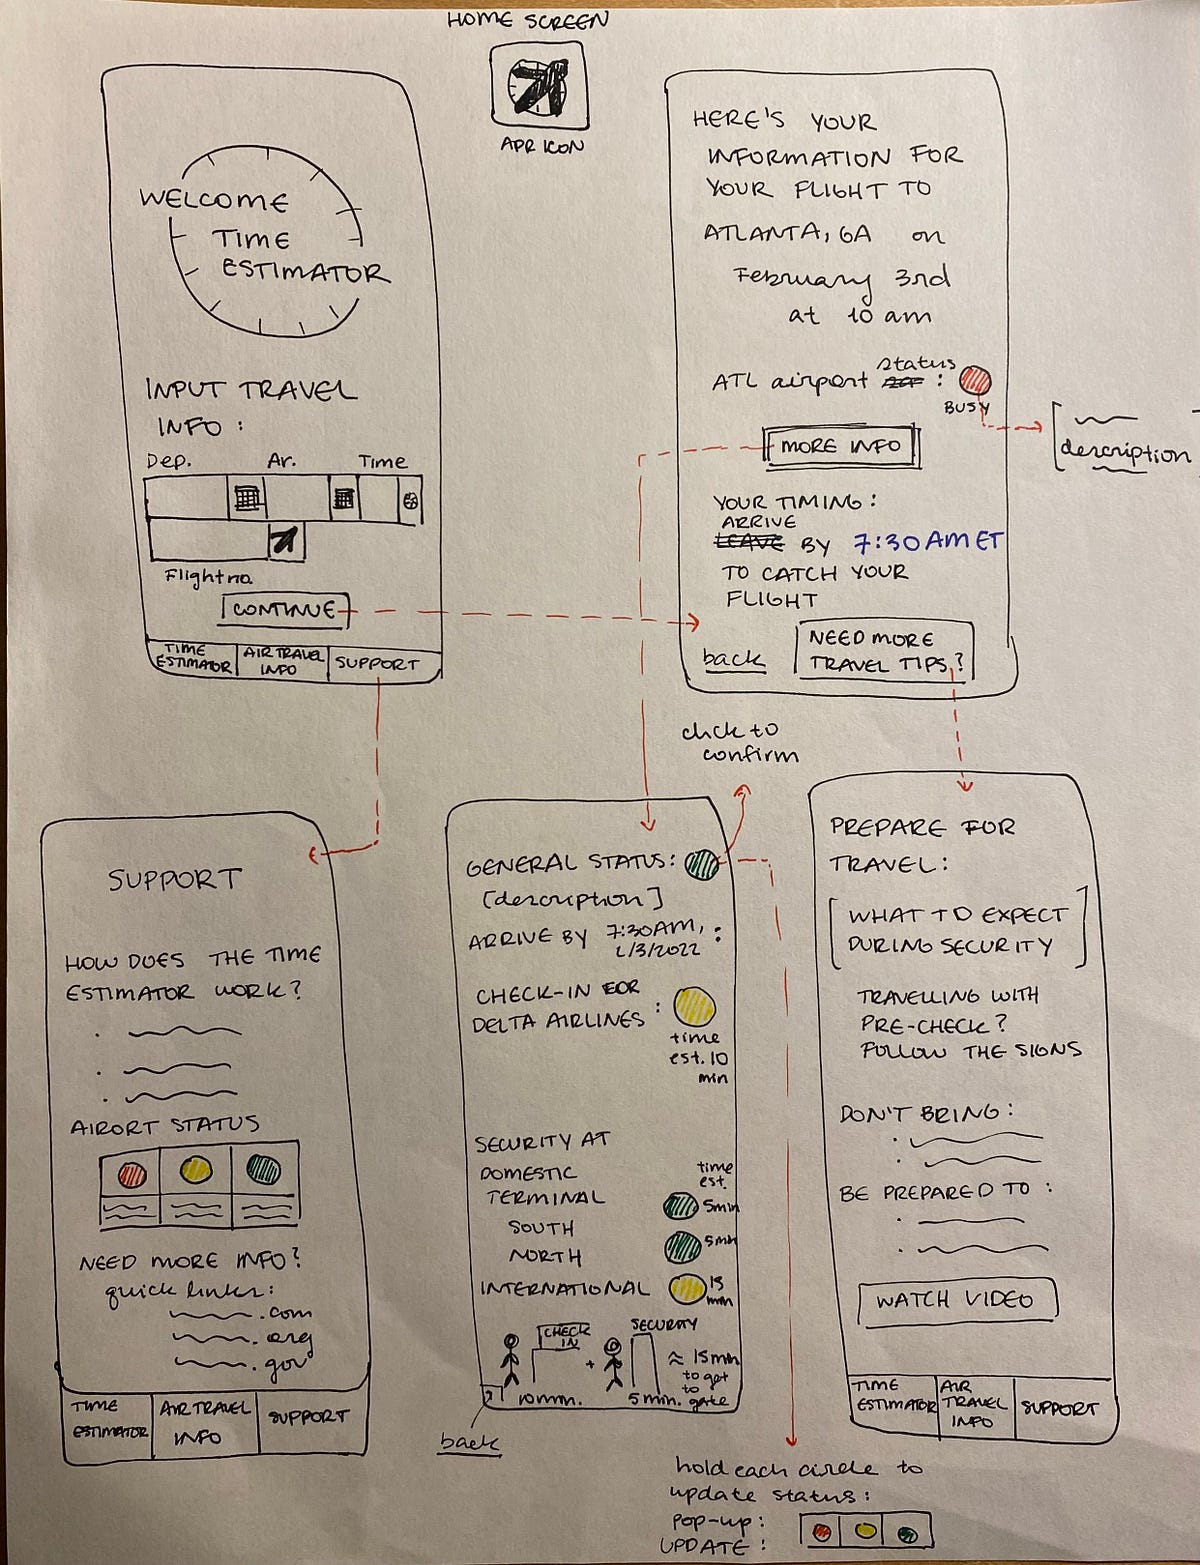 HOME SCREEN
APP ICON
WELCOME
TIME
ESTIMATOR
INPUT TRAVEL
INFO:
Dep. Ar. Time
Flight no.
CONTINUE
TIME ESTIMATOR
AIR TRAVEL INFO
SUPPORT
HERE'S YOUR
INFORMATION FOR
YOUR FLIGHT TO
ATLANTA, GA on
February 3rd
at 10 am
ATL airport status :
BUSY
description
MORE INFO
YOUR TIMING:
ARRIVE
LEAVE BY 7:30AM ET
TO CATCH YOUR
FLIGHT
back
NEED MORE
TRAVEL TIPS?
click to
confirm
SUPPORT
HOW DOES THE TIME
ESTIMATOR WORK?
AIRORT STATUS
NEED MORE INFO?
quick links:
.com
.org
.gov
TIME ESTIMATOR
AIR TRAVEL INFO
SUPPORT
GENERAL STATUS:
[description]
ARRIVE BY 7:30AM, :
2/3/2022
CHECK-IN FOR
DELTA AIRLINES :
time
est. 10
min
SECURITY AT
DOMESTIC
TERMINAL
time
est.
5min
SOUTH
NORTH
5min
INTERNATIONAL
15
min
CHECK
IN
+
SECURITY
≈ 15min
to get
to
gate
10 min.
5 min.
back
PREPARE FOR
TRAVEL:
[WHAT TO EXPECT
DURING SECURITY]
TRAVELLING WITH
PRE-CHECK?
FOLLOW THE SIGNS
DON'T BRING:
BE PREPARED TO:
WATCH VIDEO
TIME ESTIMATOR
AIR TRAVEL INFO
SUPPORT
hold each circle to
update status:
pop-up:
UPDATE :